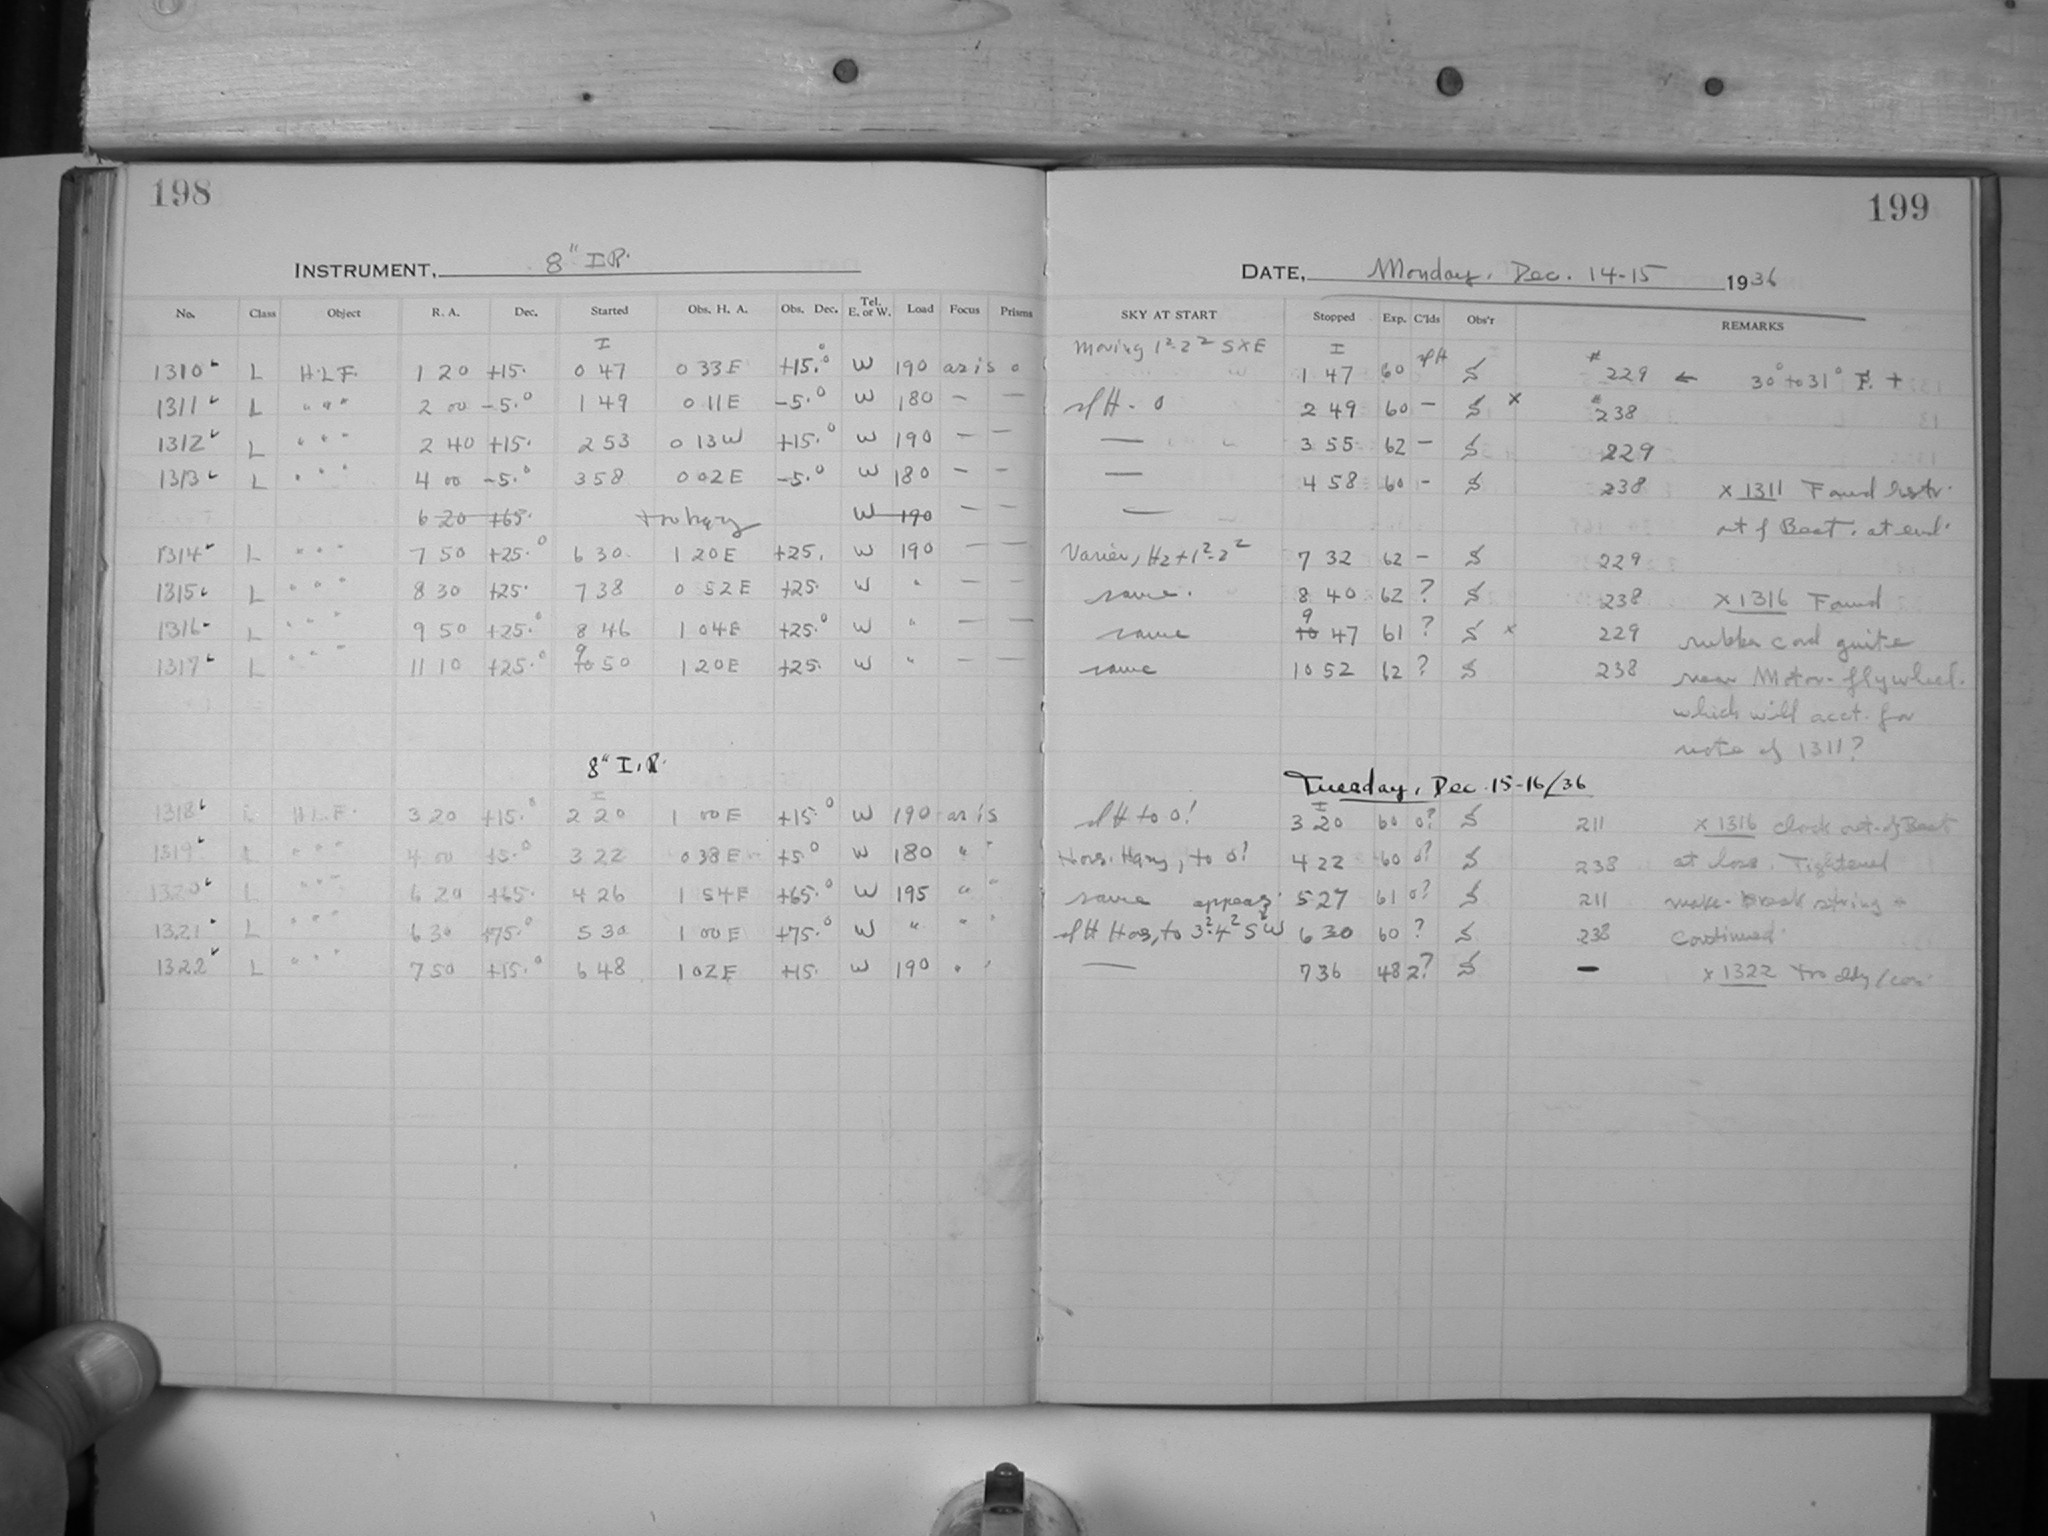 198
199
INSTRUMENT, 8" I.R.
DATE, Monday, Dec. 14-15 1936
No. Class Object R. A. Dec. Started Obs. H. A. Obs. Dec. Tel. E. or W. Load Focus Prisms SKY AT START Stopped Exp. C'lds Obs'r REMARKS
I Moving 1²-2² SXE I
1310 L H.L.F. 1 20 +15. 0 47 0 33E +15.° W 190 ax is 0 1 47 60 S #229 ← 30° to 31° F. +
1311 L " " " 2 00 -5.° 1 49 0 11E -5.° W 180 — — 2 49 60 — S x #238
1312 L " " " 2 40 +15. 2 53 0 13W +15.° W 190 — — — 3 55 62 — S 229
1313 L " " " 4 00 -5.° 3 58 0 02E -5.° W 180 — — — 4 58 60 - S 238 x 1311 Found
6 20 +65. W 190 — — — of Beat. at end.
1314 L " " " 7 50 +25.° 6 30 1 20E +25. W 190 — — 7 32 62 — S 229
1315 L " " " 8 30 +25. 7 38 0 52E +25. W " — — same. 8 40 62 ? S 238 x 1316 Found
1316 L " " " 9 50 +25.° 8 46 1 04E +25.° W " — — same 9 10 47 61 ? S x 229 rubber cord quite
1317 L " " " 11 10 +25.° 9 10 50 1 20E +25. W " — — same 10 52 62 ? S 238 near Motor-flywheel.
which will acct. for
note of 1311?
8" I.R.
Tuesday, Dec. 15-16/36
I I
1318 L H.L.F. 3 20 +15.° 2 20 1 00E +15.° W 190 ax is to 0! 3 20 60 0? S 211 x 1316 clock out-of Beat
1319 L " " " 4 00 +5.° 3 22 0 38E +5° W 180 " " to 0? 4 22 60 0? S 238 at close. Tightened
1320 L " " " 6 20 +65. 4 26 1 54E +65.° W 195 " " same appears 5 27 61 0? S 211 make-break string +
1321 L " " " 6 30 +75.° 5 30 1 00E +75.° W " " " 6 30 60 ? S 238 Continued.
1322 L " " " 7 50 +15.° 6 48 1 02E +15. W 190 " " — 7 36 48 2? S — x 1322